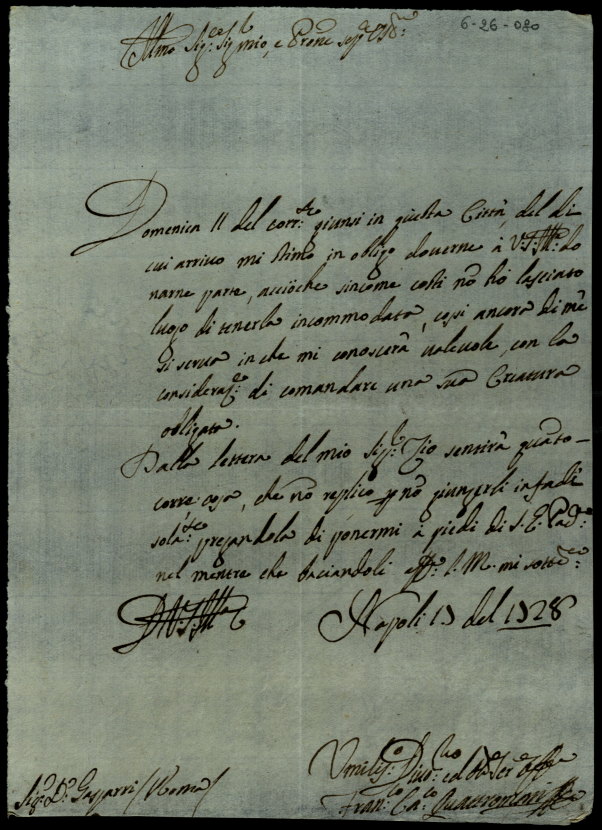 6-26-020
Illmo Sig.re Sig.r mio, e Prone
Domenica 11 del corr.te giunsi in questa Città, del di
cui arrivo mi stimo in obligo doverne à V.S.Illma do
narne parte, acciòche sincome costì nõ hò lasciato
luogo di tenerla incommodata, cosi ancora di me
si serva in che mi conoscerà valevole, con la
consideraz.e di comandare una sua Creatura
obligata.
Dalla lettera del mio Sig.r Zio sentirà quãto
corre cosa, che nõ replico p nõ giungerli infadi
sola.te pregandola di ponermi à piedi di S.E. Pad.e
nel mentre che baciandoli le M. mi
D.V.S.Illma
Napoli 13 del 1728
Umiliss.o Div.mo ed
Fran.co Ca.
Sig.r D. Gasparri / Roma /